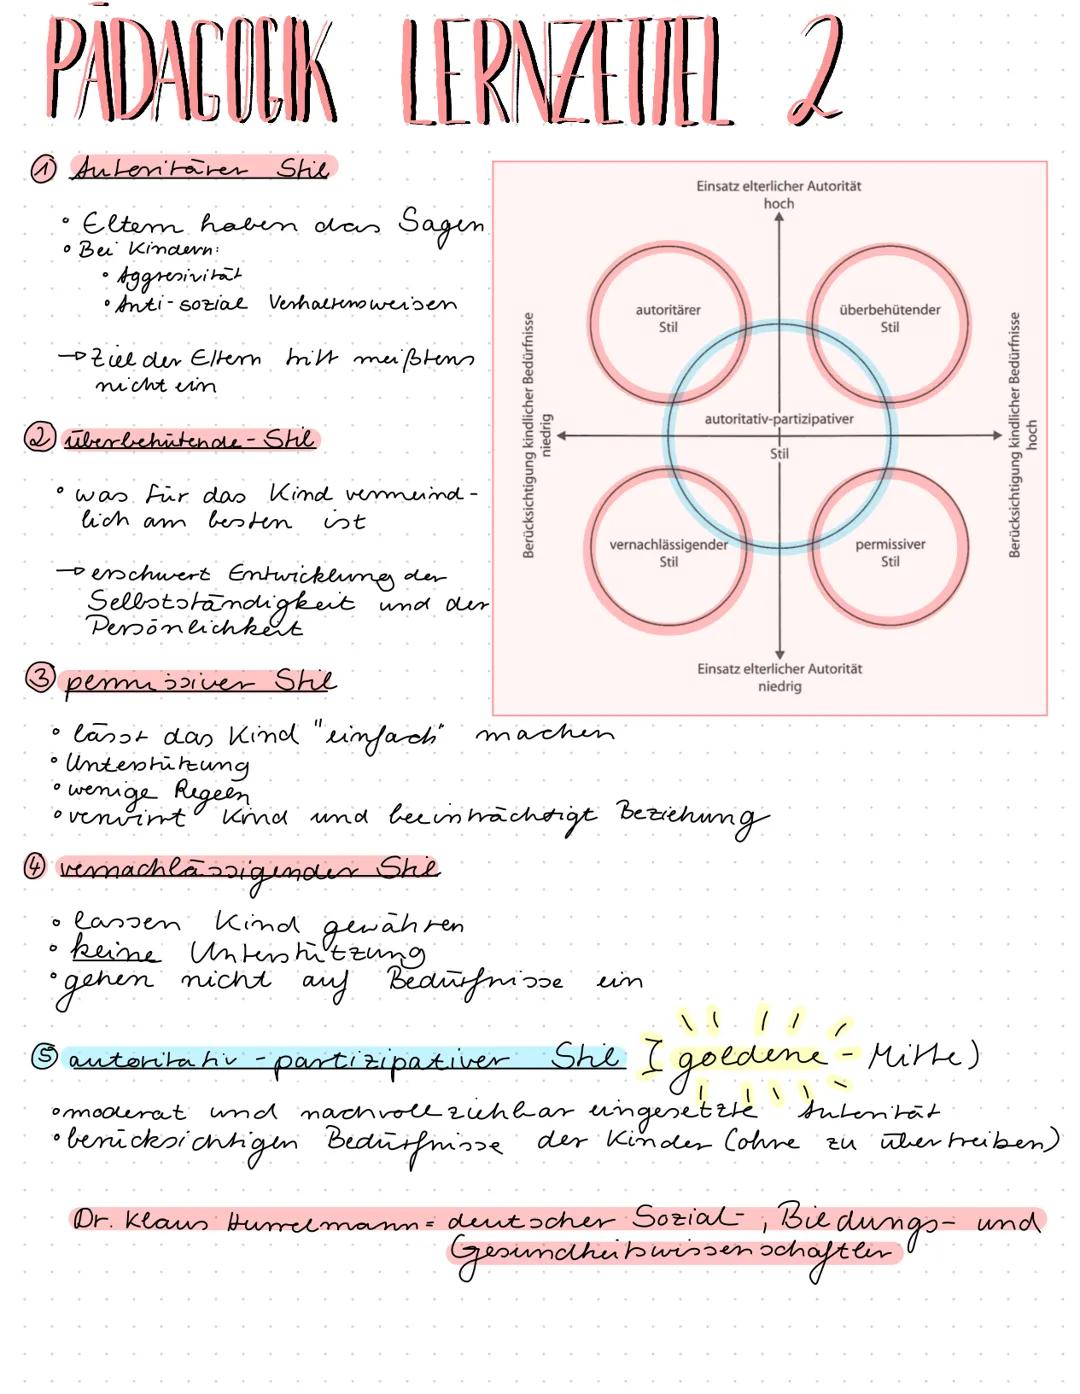 PÄDAGOGIK LERNZETTEL 2
① Autoritärer Stil
° Eltern haben das Sagen
° Bei Kindern:
° Aggresivität
° Anti-sozial Verhaltensweisen
→ Ziel der Eltern tritt meißtens
nicht ein
② überbehütende-Stil
° was für das Kind vermeind-
lich am besten ist
→ erschwert Entwicklung der
Selbstständigkeit und der
Persönlichkeit
Einsatz elterlicher Autorität
hoch
autoritärer
Stil
überbehütender
Stil
Berücksichtigung kindlicher Bedürfnisse
niedrig
autoritativ-partizipativer
Stil
Berücksichtigung kindlicher Bedürfnisse
hoch
vernachlässigender
Stil
permissiver
Stil
Einsatz elterlicher Autorität
niedrig
③ permissiver Stil
° lässt das Kind "einfach" machen
° Unterstützung
° wenige Regeln
° verwirrt Kind und beeinträchtigt Beziehung
④ vernachlässigender Stil
° lassen Kind gewähren
° keine Unterstützung
° gehen nicht auf Bedürfnisse ein
⑤ autoritativ-partizipativer Stil (goldene-Mitte)
° moderat und nachvollziehbar eingesetzte Autorität
° berücksichtigen Bedürfnisse der Kinder (ohne zu übertreiben)
Dr. Klaus Hurrelmann = deutscher Sozial-, Bildungs- und
Gesundheitswissenschaftler